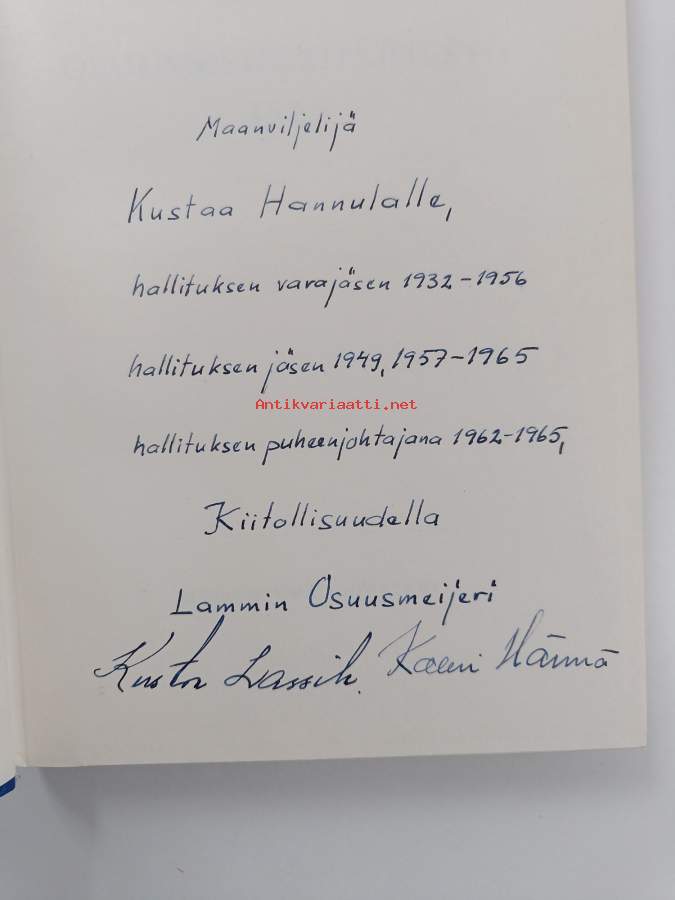 Maanviljelijä
Kustaa Hannulalle,
hallituksen varajäsen 1932-1956
hallituksen jäsen 1949, 1957-1965
Antikvariaatti.net
hallituksen puheenjohtajana 1962-1965,
Kiitollisuudella
Lammin Osuusmeijeri